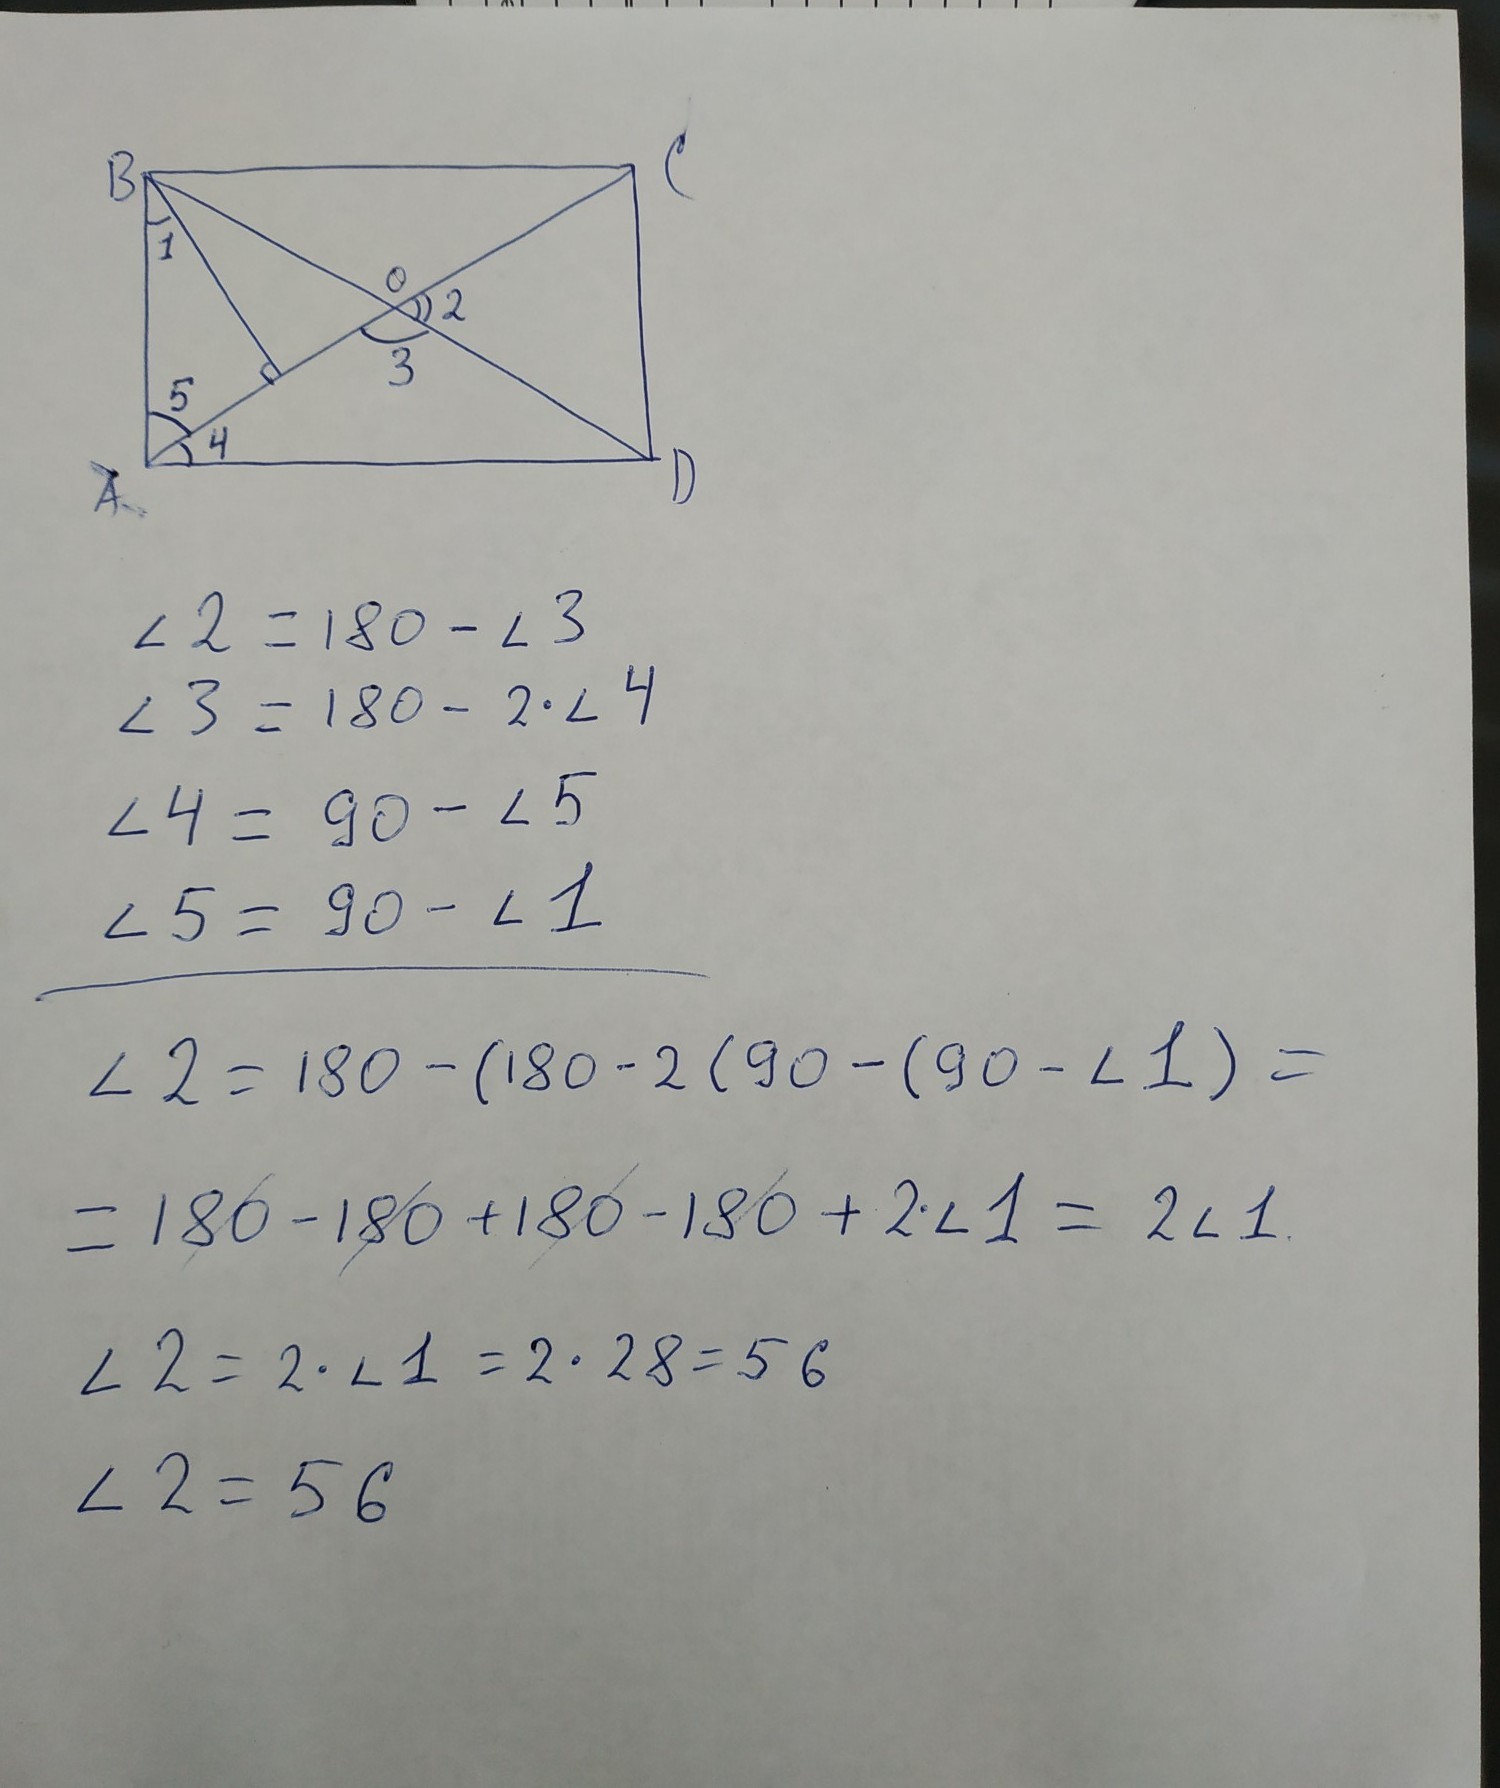 B C
1
O
2
3
5
4
A D
∠2 = 180 - ∠3
∠3 = 180 - 2·∠4
∠4 = 90 - ∠5
∠5 = 90 - ∠1
∠2 = 180 - (180 - 2(90 - (90 - ∠1) =
= 180 - 180 + 180 - 180 + 2·∠1 = 2∠1.
∠2 = 2·∠1 = 2·28 = 56
∠2 = 56